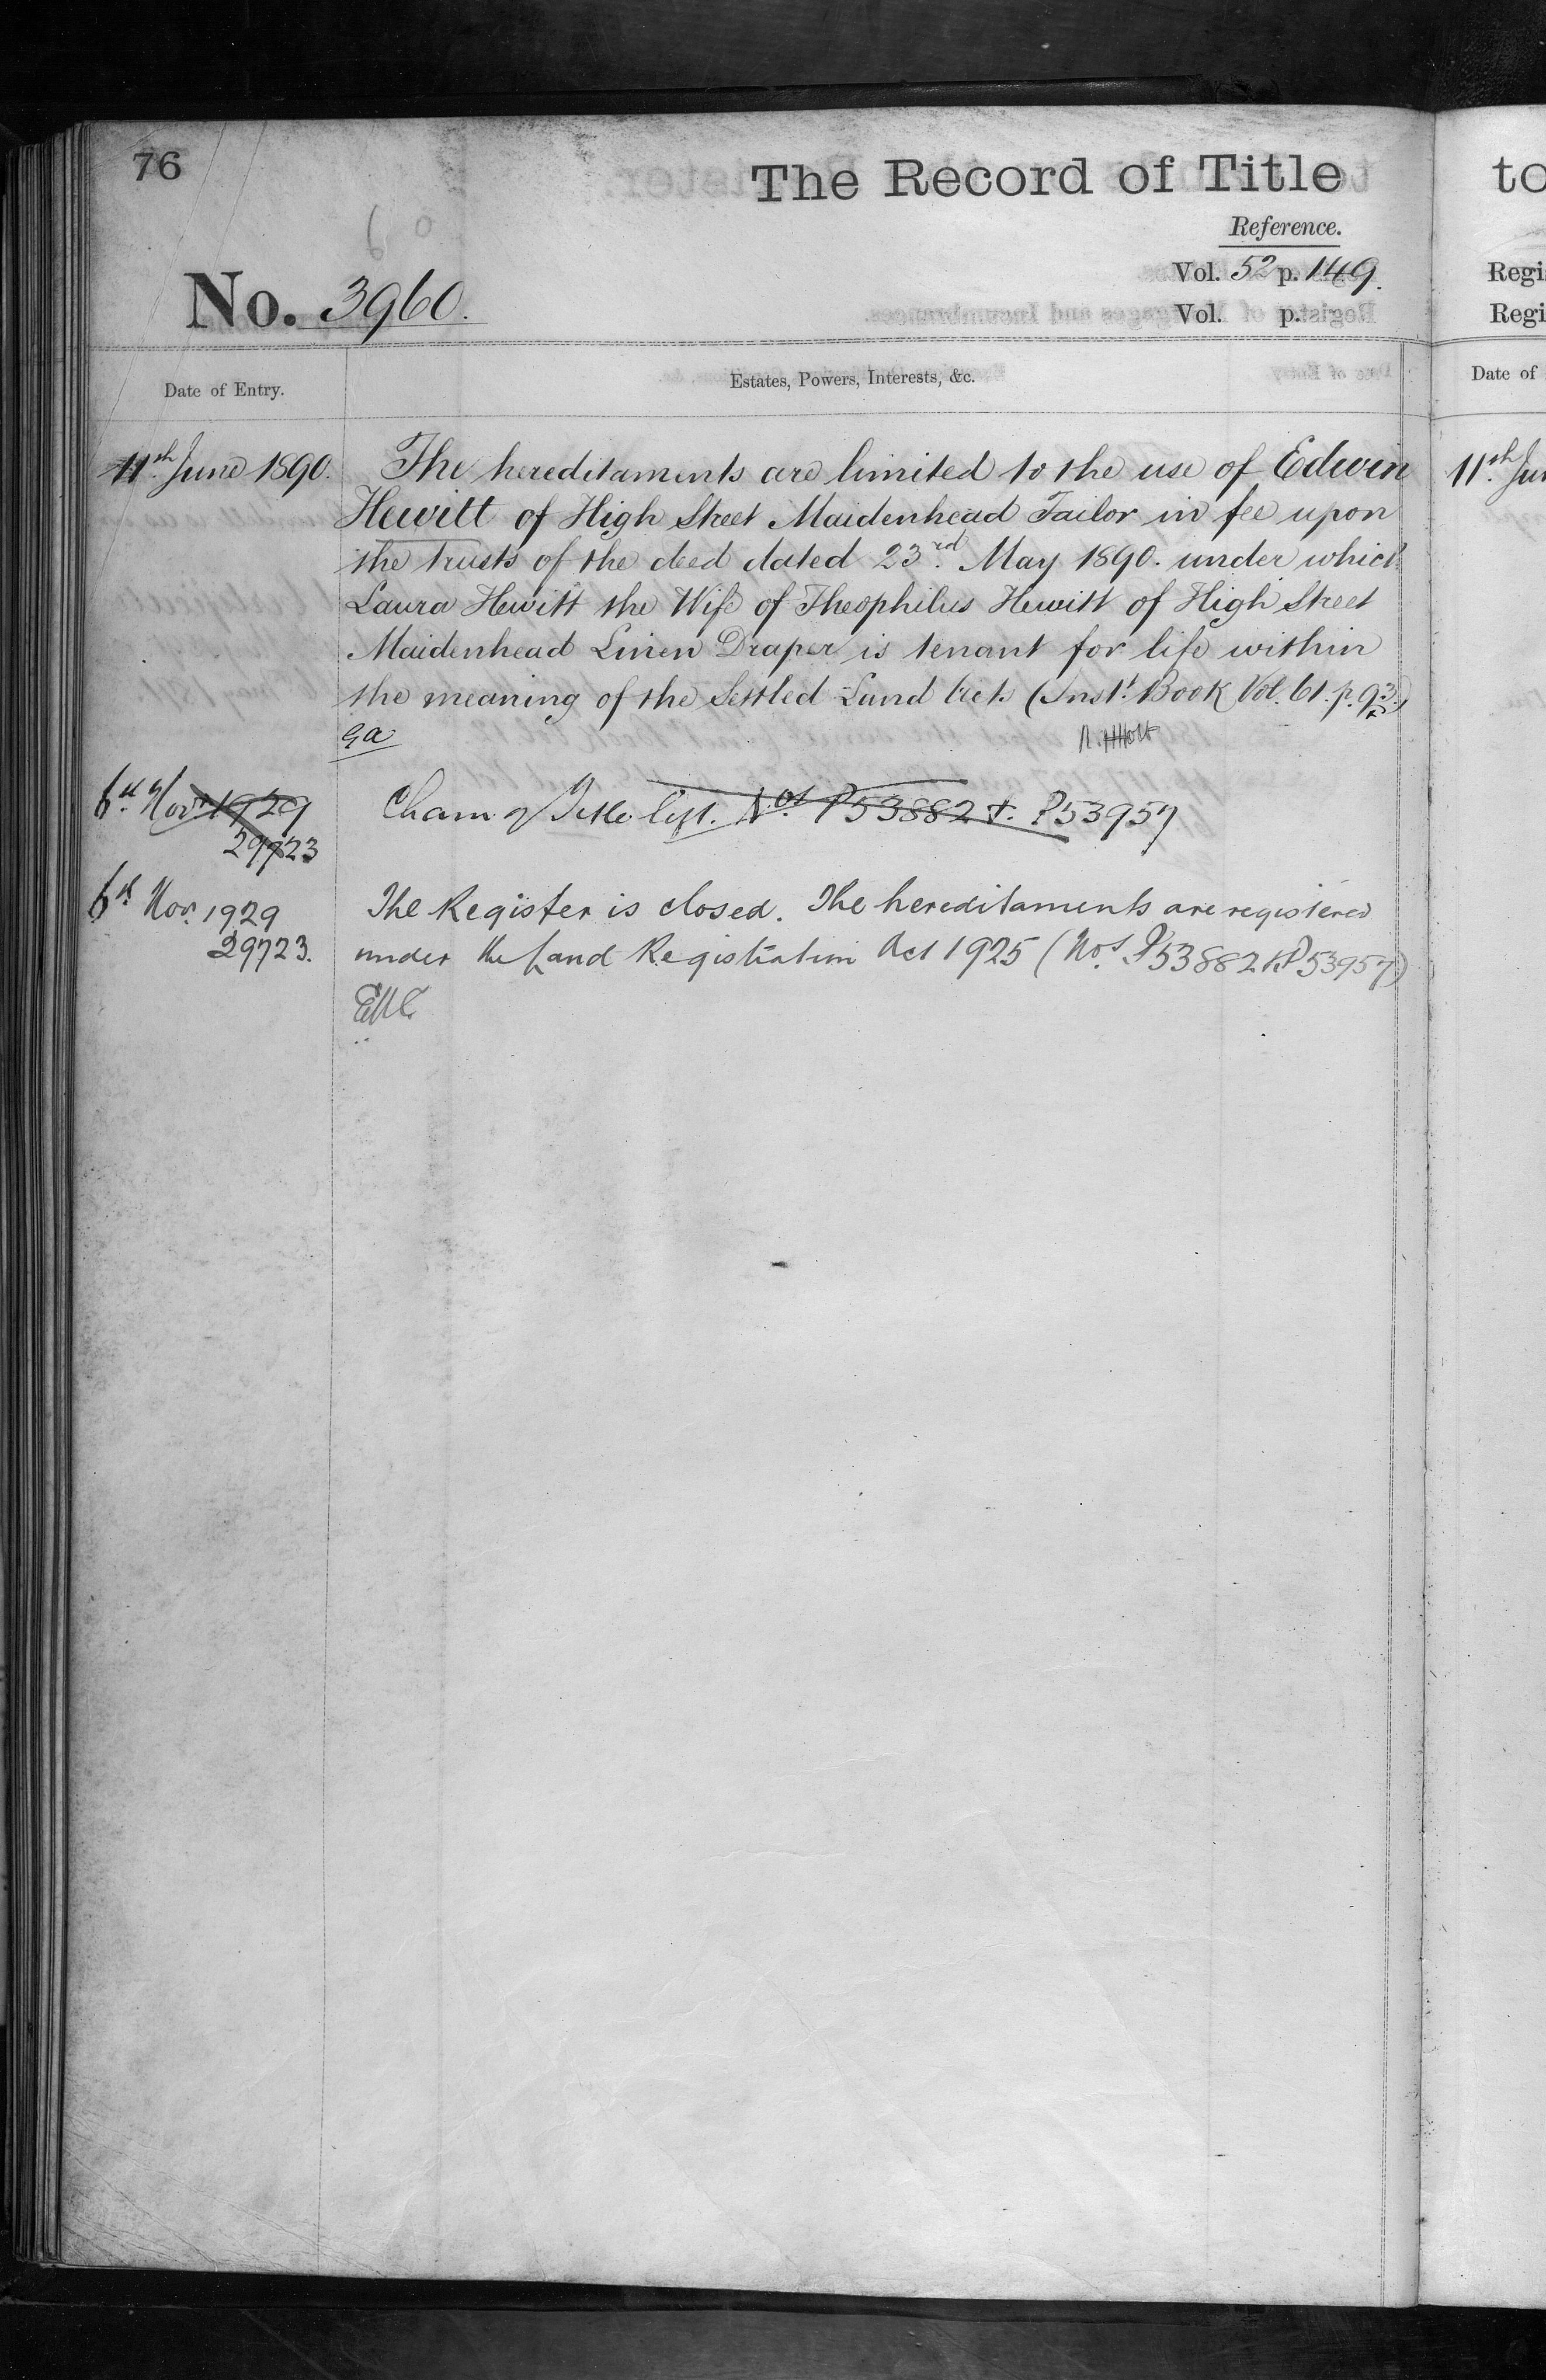 76
The Record of Title
Reference.
No. 3960.
Vol. 52 p. 149.
Vol. p.
Date of Entry.
Estates, Powers, Interests, &c.
11th June 1890. The hereditaments are limited to the use of Edwin
Hewitt of High Street Maidenhead Tailor in fee upon
the trusts of the deed dated 23rd. May 1890. under which
Laura Hewitt the Wife of Theophilus Hewitt of High Street
Maidenhead Linen Draper is tenant for life within
the meaning of the Settled Land Acts (Inst. Book Vol. 61. p. 93)
6th Nov 1929 Chain of Title Nos. P53882 & P53957
29723
6th Nov. 1929 The Register is closed. The hereditaments are registered
29723. under the Land Registration Act 1925 (Nos. P53882 & P53957)
to
Regi
Regi
Date of
11th. Jun